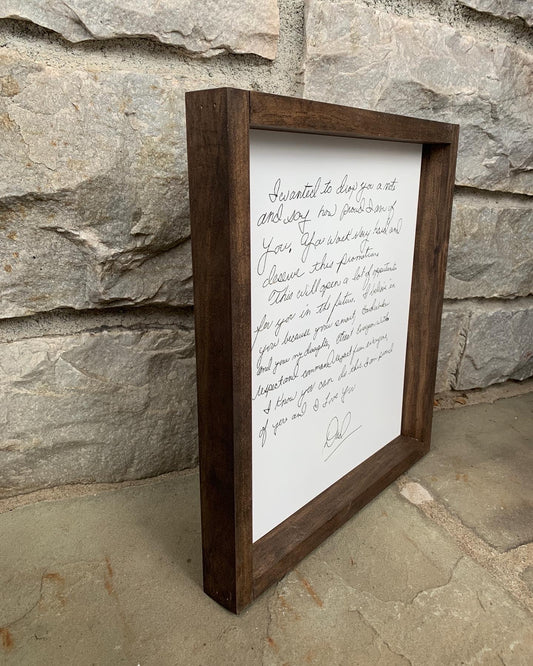 I wanted to drop you a not
and say how proud I am of
you. You work very hard and
deserve this promotion
This will open a lot of opportunities
for you in the future. I believe in
you because your smart, hard worker
and your my daughter. Treat everyone with
respect and command respect from everyone,
I know you can do this I am proud
of you and I Love you
Dad